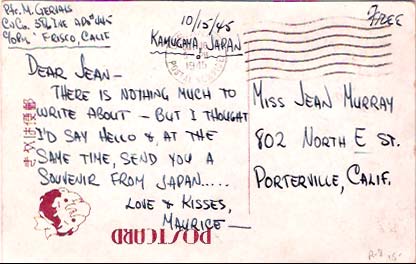 Pfc. M. Gervais
10/15/45
Free
Kamugaya, Japan
1945
Dear Jean -
There is nothing much to
write about - but I thought
I'd say hello & at the
same time, send you a
souvenir from Japan.....
Love & Kisses,
Maurice
Miss Jean Murray
802 North E St.
Porterville, Calif.
POSTCARD